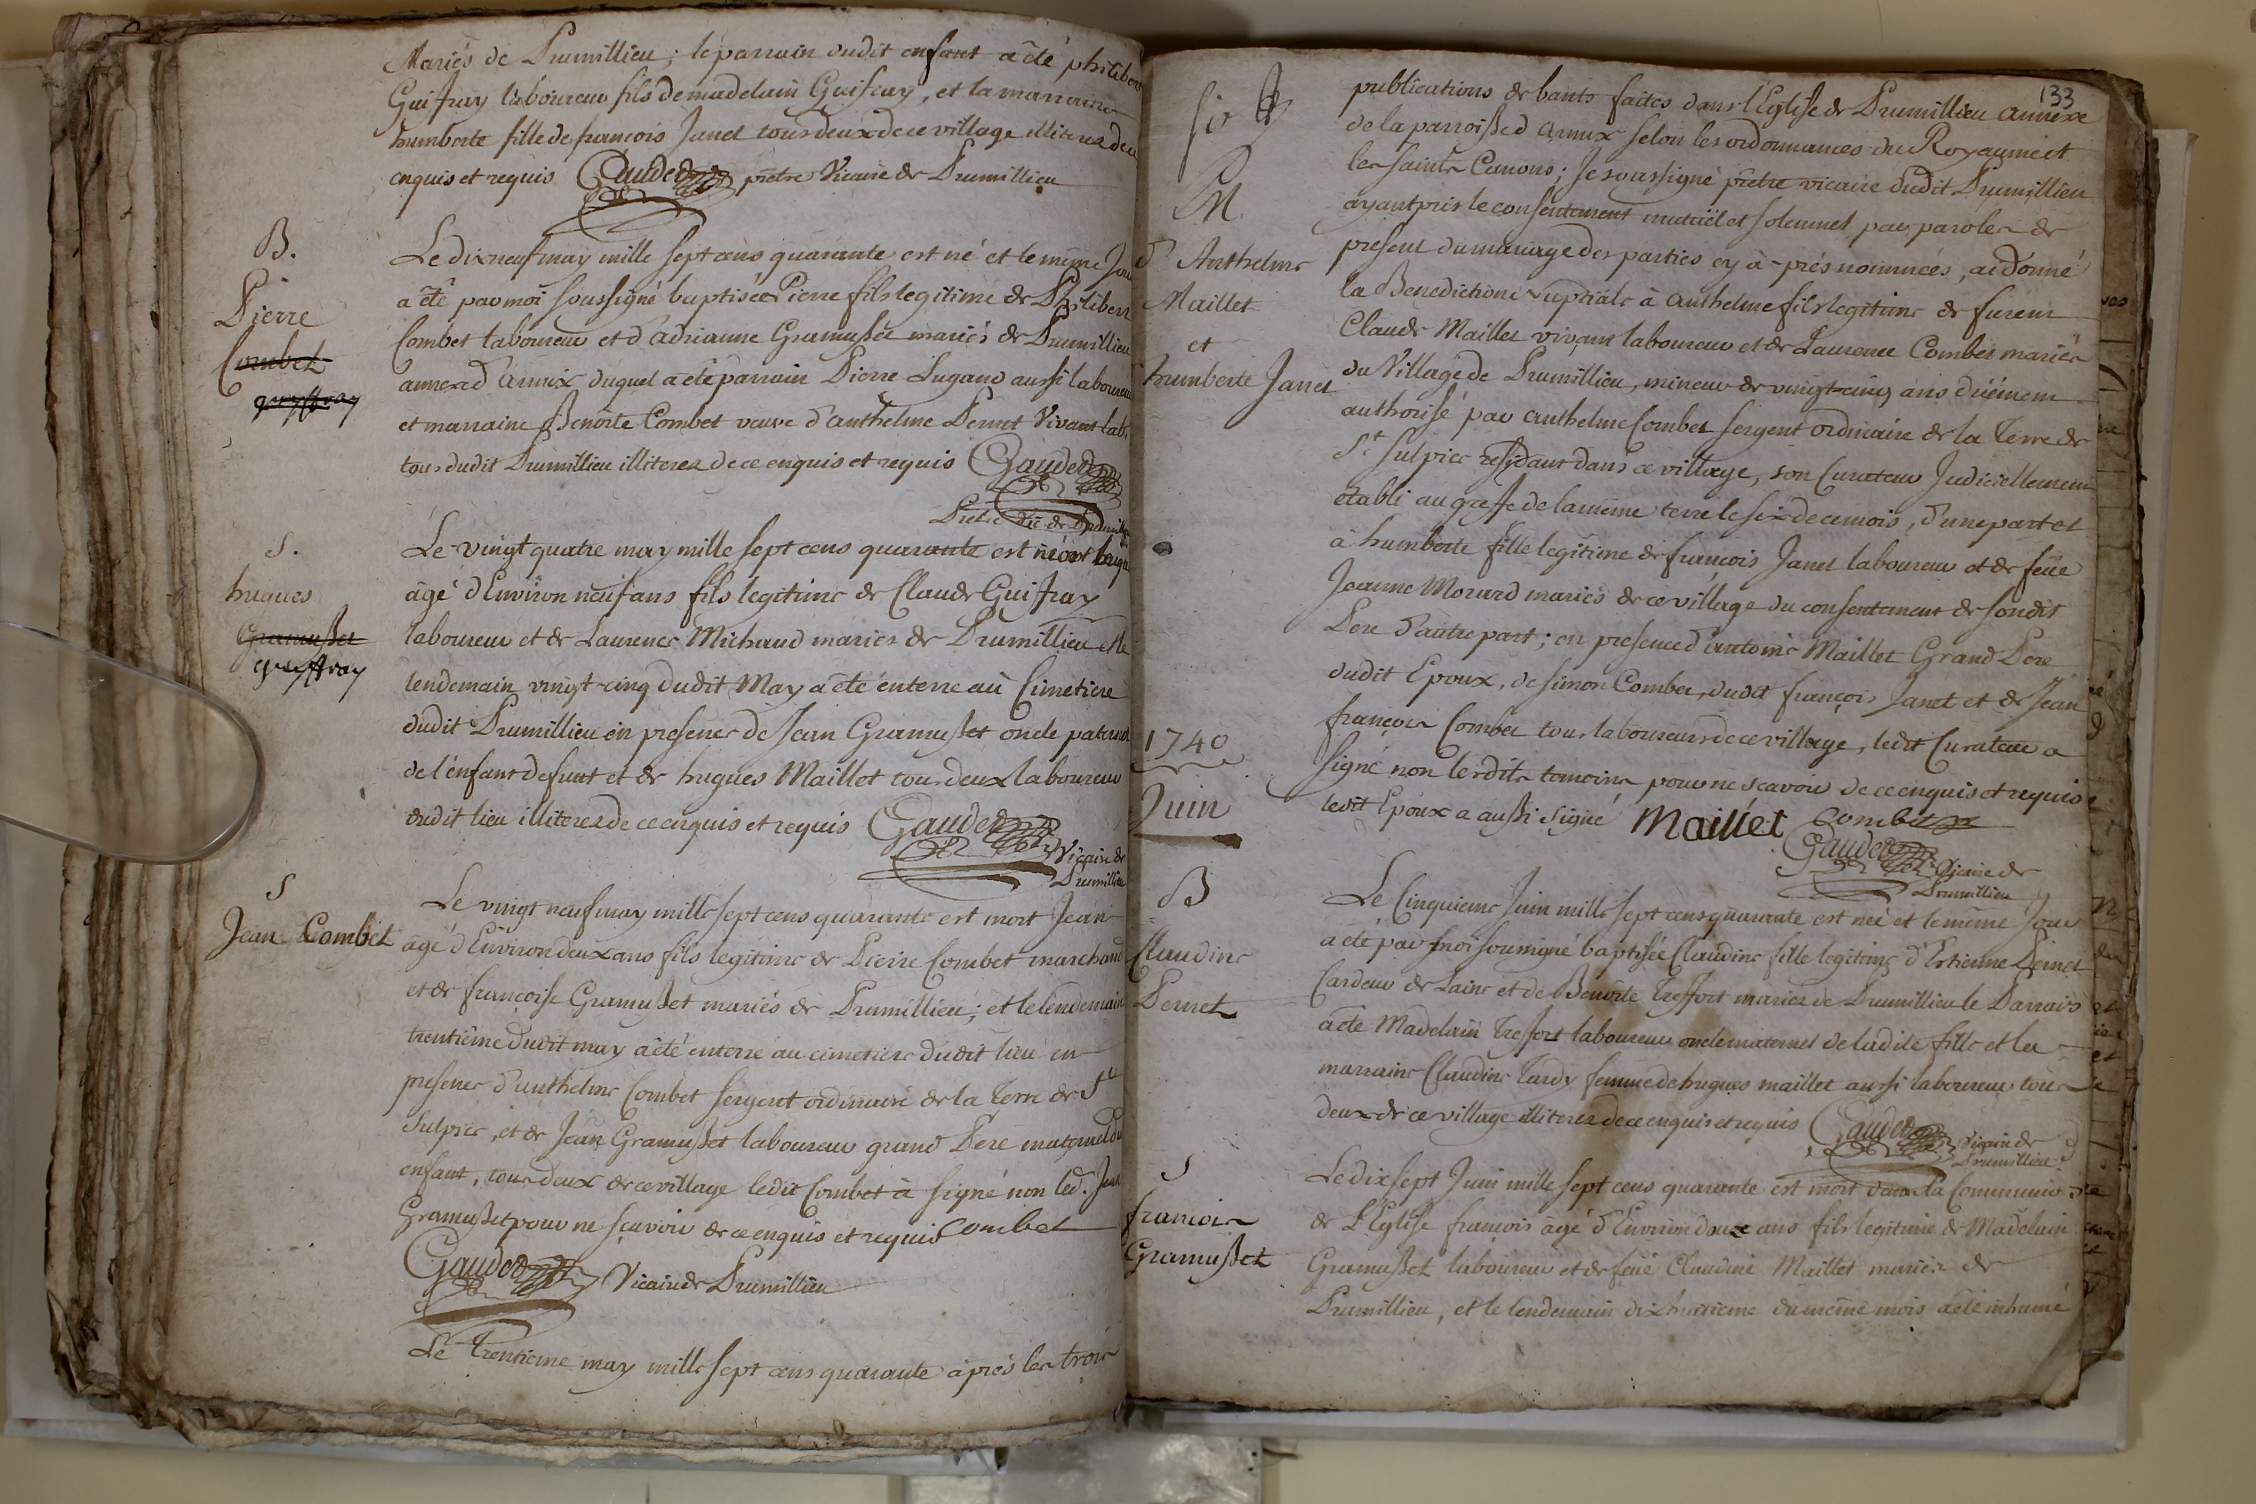 Mariés de Prumillieu ; le parrain dudit enfant a été philibert
Guifray laboureur fils de madelain Guifray, et la marraine
humberte fille de françois Janet tous deux de ce village illiteres de ce
enquis et requis Gaudet prêtre Vicaire de Prumillieu
B.
Pierre
Combet
guyffray
Le dixneuf may mille sept cens quarante est né et le même Jour
a été par moi soussigné baptisée Pierre fils legitime de Philibert
Combet laboureur et d'adrianne Gramusset mariés de Prumillieu
annexe d'Armix duquel a été parrain Pierre Lugand aussi laboureur
et marraine Benoîte Combet veuve d'anthelme Pernet Vivant lab.
tous dudit Prumillieu illiteres de ce enquis et requis Gaudet
Prêtre Vic de Prumillieu
S.
hugues
Gramusset
guyffray
Le vingt quatre may mille sept cens quarante est mort hugues
âgé d'Environ neuf ans fils legitime de Claude Guifray
laboureur et de Laurence Michaud mariés de Prumillieu et le
lendemain vingt-cinq dudit May a été enterré au Cimetiere
dudit Prumillieu en presence de Jean Gramusset oncle paternel
de l'enfant defunt et de hugues Maillet tous deux laboureur
dudit lieu illiteres de ce enquis et requis Gaudet
Vicaire de
Prumillieu
S
Jean Combet
Le vingt neuf may mille sept cens quarante est mort Jean
âgé d'Environ deux ans fils legitime de Pierre Combet marchand
et de françoise Gramusset mariés de Prumillieu ; et le lendemain
trentième dudit may a été enterré au cimetiere dudit lieu en
presence d'anthelme Combet sergent ordinaire de la Terre de St
Sulpice, et de Jean Gramusset laboureur grand Pere maternel du
enfant, tous deux de ce village ledit Combet à signé non led. Jean
Gramusset pour ne sçavoir de ce enquis et requis Combet
Gaudet Vicaire de Prumillieu
Le Trentième may mille sept cens quarante après les trois
133
M
d'Anthelme
Maillet
et
humberte Janet
publications de bants faites dans l'Eglise de Prumillieu annexe
de la parroisse d'Armix selon les ordonnances du Royaume et
les saints Canons ; Je soussigné prêtre vicaire dudit Prumillieu
ayant pris le consentement mutuël et solemnel par paroles de
present du mariage des parties cy à-prés nommées, ai donné
la Benediction Nuptiale à anthelme fils legitime de furent
Claude Maillet vivant laboureur et de Laurence Combet mariés
du Village de Prumillieu, mineur de vingt-cinq ans duëment
authorisé par anthelme Combet sergent ordinaire de la Terre de
St sulpice residant dans ce village, son Curateur Judiciellement
établi au greffe de la même terre le six de ce mois, d'une part et
à humberte fille legitime de françois Janet laboureur et de feüe
Jeanne Morard mariés de ce village du consentement de sondit
Pere d'autre part ; en presence d'antoine Maillet Grand Pere
dudit Epoux, de simon Combet, dudit françois Janet et de Jean
françois Combet tous laboureurs de ce village, ledit Curateur a
signé non lesdits temoins pour ne scavoir de ce enquis et requis
ledit Epoux a aussi signé Maillet Combet
Gaudet Vicaire de
Prumillieu
1740
Juin
B
Claudine
Pernet
Le Cinquieme Juin mille sept cens quarante est née et le meme Jour
a été par moi soussigné baptisée Claudine fille legitime d'Estienne Pernet
Cardeur de Laine et de Benoîte Treffort mariés de Prumillieu le Parrais
a été Madelain Treffort laboureur oncle maternel de ladite fille et la
marraine Claudine Tardy femme de hugues maillet aussi laboureur tous
deux de ce village illiteres de ce enquis et requis Gaudet
Vicaire de
Prumillieu
S
françois
Gramusset
Le dix sept Juin mille sept cens quarante est mort dans la Communion
de L'Eglise françois âgé d'Environ douze ans fils legitime de Madelain
Gramusset laboureur et de feüe Claudine Maillet mariés de
Prumillieu, et le lendemain dix huitieme du même mois a été inhumé